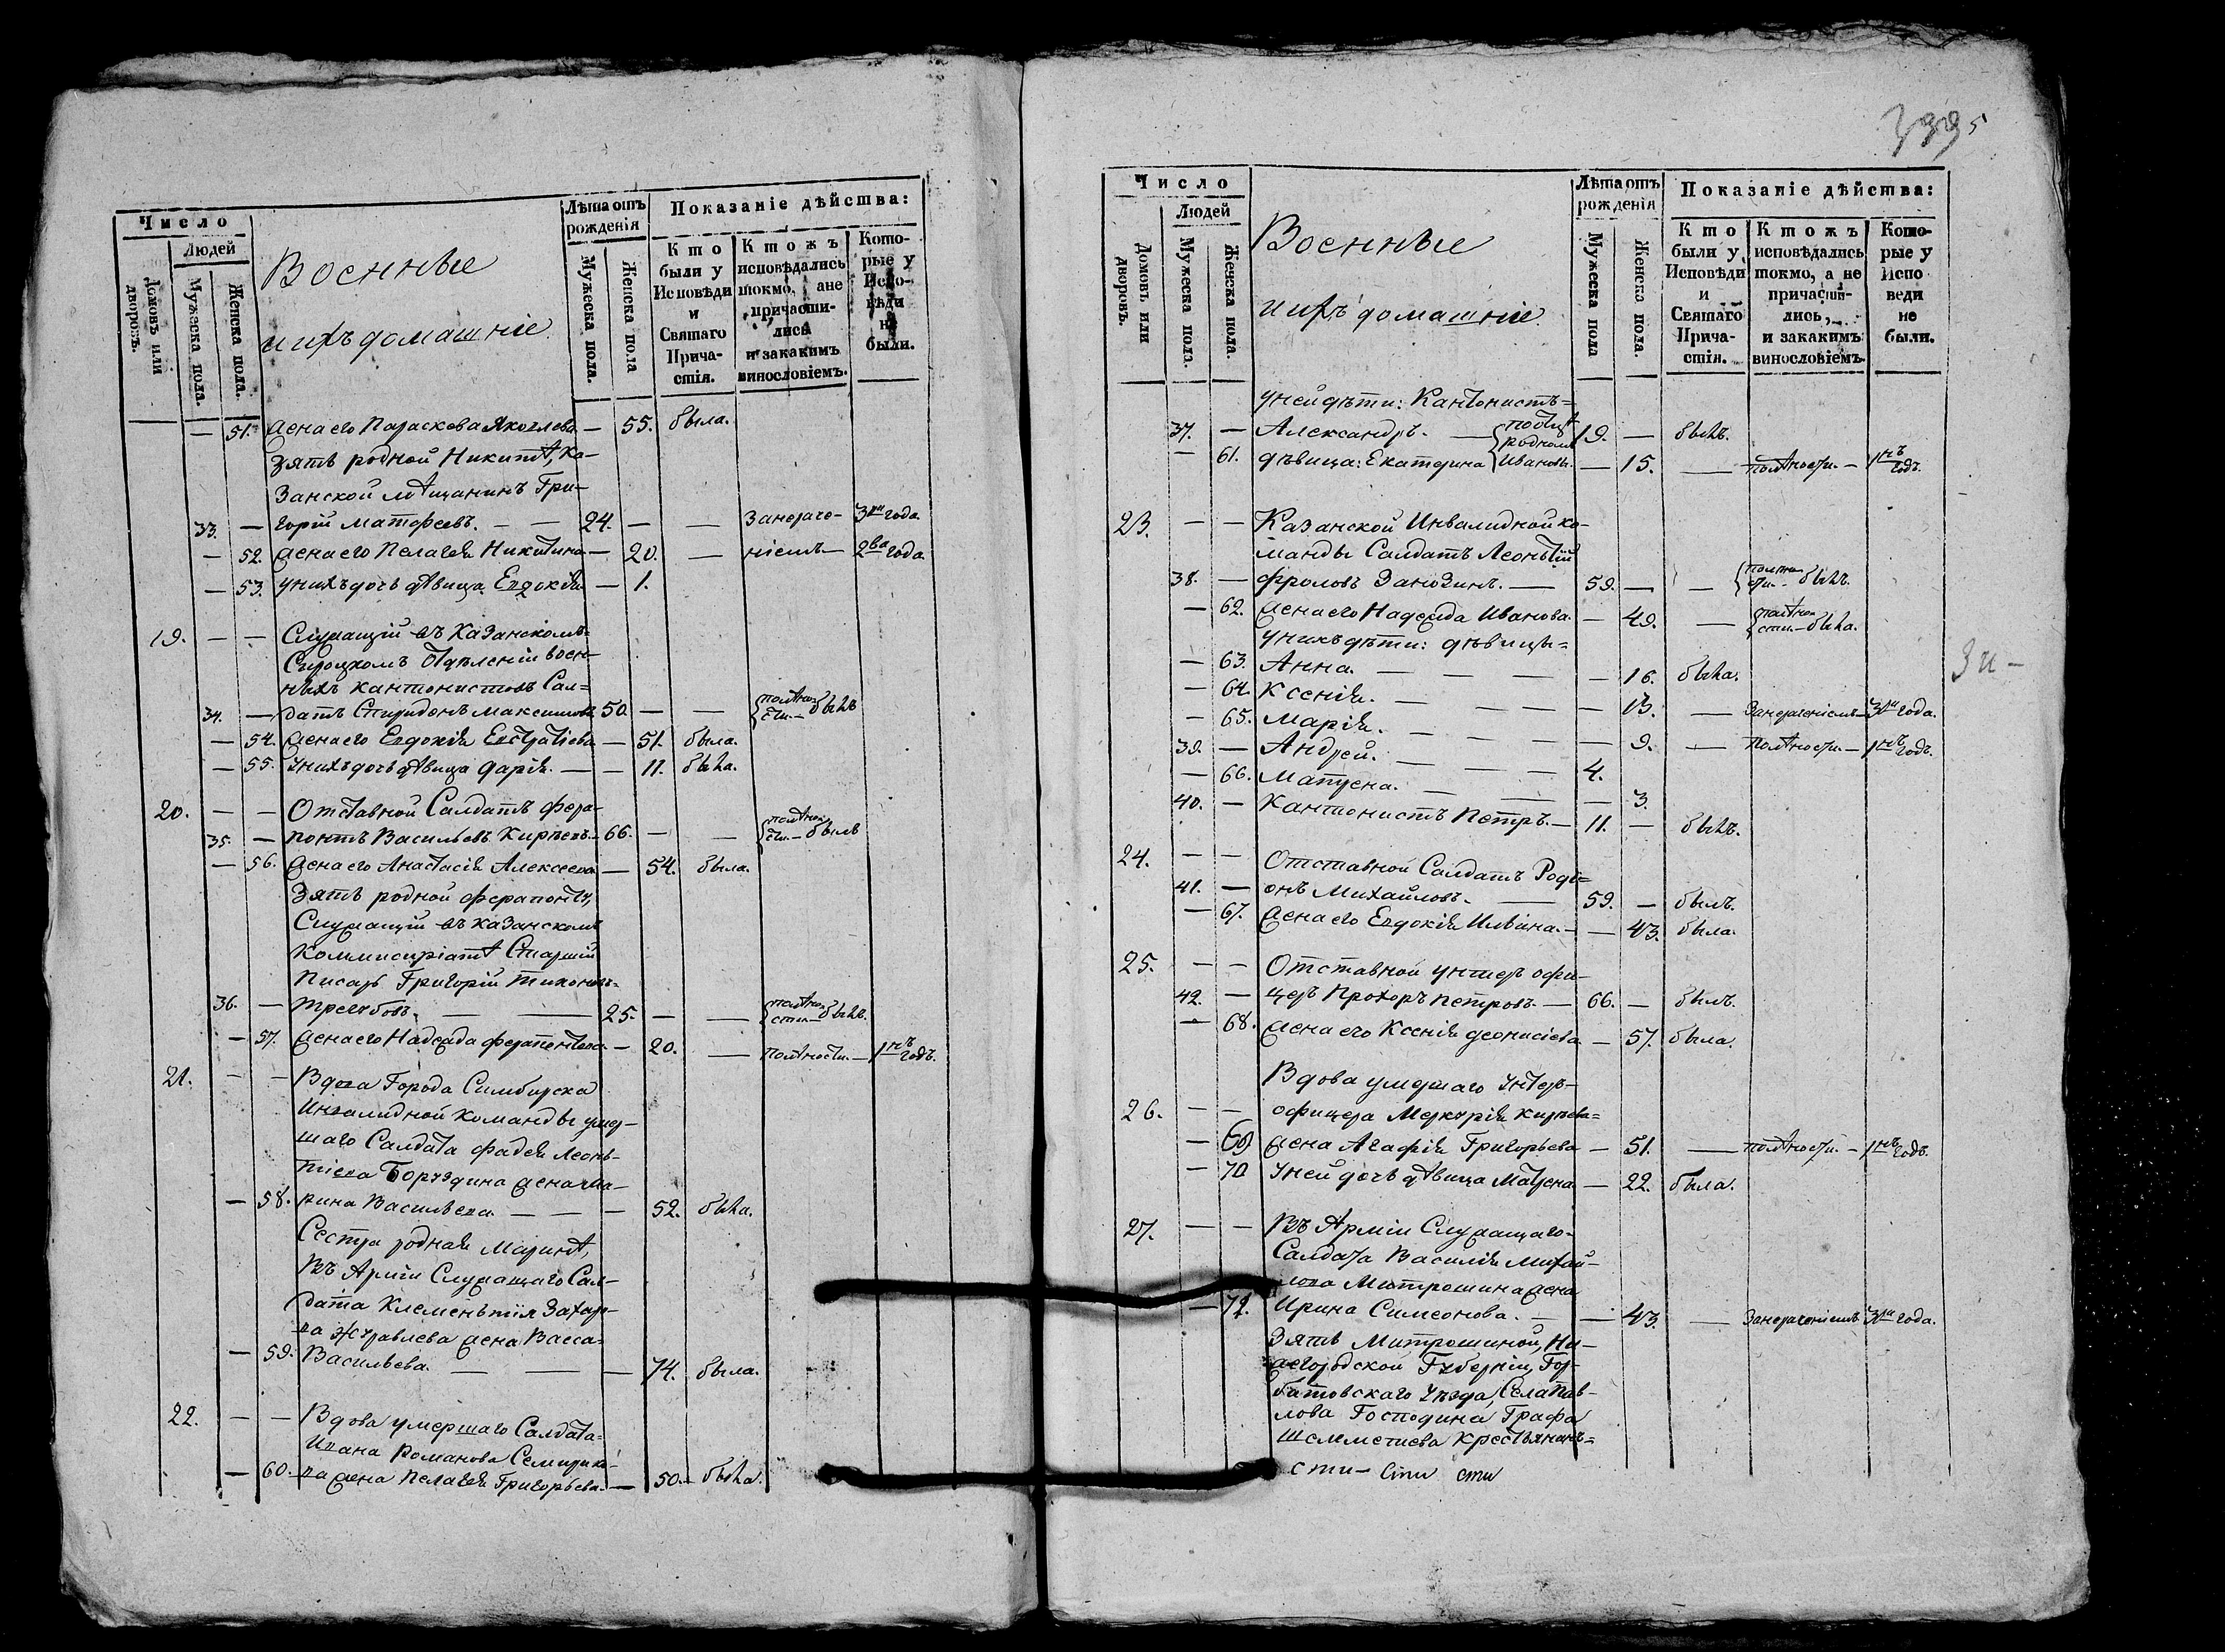 Число
Людей
Домовъ или дворовъ.
Мужеска пола.
Женска пола.
Военные
ихъ домашніе.
Лѣта отъ рожденія
Мужеска пола.
Женска пола
Показаніе дѣйства:
Кто были у Исповѣди и Святаго Причастія.
Ктожъ исповѣдались токмо, а не причастились и закакимъ винословіемъ.
Которые у Исповѣди не были.
— 51. жена его Параскева Яковлева — 55. была.
Зять родной Никитѣ, Ка-
занской мѣщанинъ Гри-
33. — горій Матфеевъ. — — 24. — — Занераче- 3ри года.
— 52. жена его Пелагея Никитина — 20. — ніемъ — 2ва года.
— 53. унихъ дочь дѣвица Евдокія — 1.
19. — — Служащій въ Казанскомъ
Сиротскомъ Отдѣленіи воен-
ныхъ кантонистовъ Сал-
34. — датъ Спиридонъ Максимовъ 50 — — полѣнос ти. — былъ
— 54. жена его Евдокія Евстратіева — 51. была.
— 55. Унихъ дочь дѣвица Дарія. — — 11. была.
20. — — Отставной Салдатъ Фера-
35. — понтъ Васильевъ Кирѣевъ. — 66. — — полѣнос ти. — былъ
— 56. жена его Анастасія Алексеева — 54. была.
Зять родной Ферапонту,
Служащій въ Казанскомъ
Коммисиріатѣ Старшій
Писарь Григорій Тихоновъ
36. — Трегубовъ. — — 25. — — полѣно сти — былъ.
— 57. жена его Надежда Ферапентова — 20. — полѣности. — 1нъ годъ.
21. — — Вдова Города Симбирска
Инвалидной Команды умер-
шаго Салдата Фадея Леонь-
тіева Бораздина жена Ма-
— 58. рина Васильева. — — — 52. была.
Сестра родная Маринѣ,
Въ Арміи Служащаго Сал-
дата Клементія Захар-
ва Журавлева жена Васса
— 59. Васильева. — — — 74. была.
22. — — Вдова умершаго Салдата
Ивана Романова Семирико-
— 60. ва жена Пелагея Григорьева. — 50. — была.
3995
Число
Людей
Домовъ или дворовъ.
Мужеска пола.
Женска пола.
Военные
ихъ домашніе.
Лѣта отъ рожденія
Мужеска пола
Женска пола.
Показаніе дѣйства:
Кто были у Исповѣди и Святаго Причастія.
Ктожъ исповѣдались токмо, а не причастились, и закакимъ винословіемъ.
Которые у Исповеди не были.
уней дѣти: Кантонистъ
37. — Александръ. — 19. — былъ.
— 61. дѣвица: Екатерина Ивановы. — 15. — полѣности. — 1нъ годъ.
23. — — Казанской Инвалидной ко-
манды Салдатъ Леонтій
38. — Фроловъ Занозинъ. — 59. — — полѣно сти. — былъ.
— 62. жена его Надежда Иванова. — 49. — полѣно сти. — была.
Унихъ дѣти: дѣвицы
— 63. Анна. — — — — 16. была.
— 64. Ксенія. — — — — 13. — Занераченіемъ — 3ри года.
— 65. Марія. — — — — 9. — полѣности. — 1нъ годъ.
39. — Андрей. — — — 4.
— 66. Матрена. — — — 3.
40. — Кантонистъ Петръ. — 11. — былъ.
24. — — Отставной Салдатъ Роді-
41. — онъ Михайловъ. — 59. — былъ.
— 67. жена его Евдокія Ильина. — — 43. была.
25. — — Отставной унтеръ офи-
42. — церъ Прохоръ Петровъ. — 66. — былъ.
— 68. жена его Ксенія Деонисіева — 57. была.
Вдова умершаго Унтеръ-
26. — — офицера Меркурія Кирѣева
— 69 жена Агафія Григорьева — 51. — полѣности. — 1нъ годъ.
— 70 Уней дочь дѣвица Матрена — 22. была.
27. — — Въ Арміи Служащаго
Салдата Василія Михай-
лова Митрошина жена
— 72. Ирина Симеонова. — — 43. — Занераченіемъ 3ри года.
Зять Митрошиной, Ни-
жегородской Губерніи, Гор-
батовскаго Уѣзда, Села Пав-
лова Господина Графа
Шелеметиева Крестьянинъ
сти — сти сти